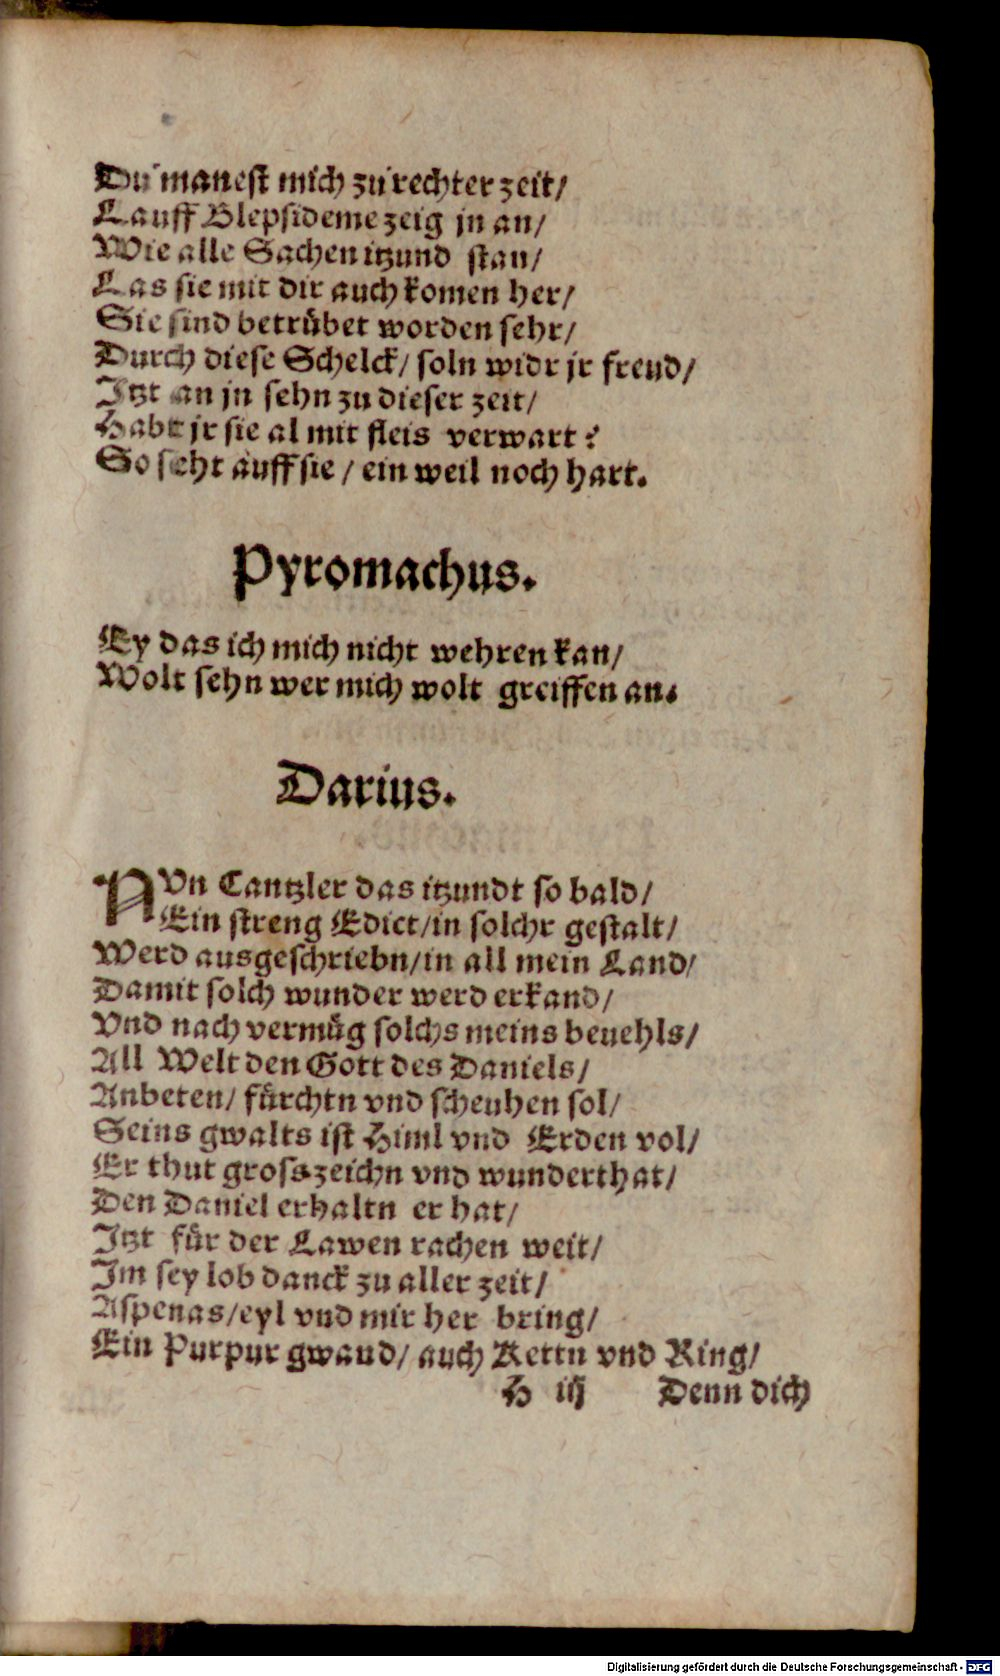 Du manest mich zu rechter zeit/
Lauff Blepsideme zeig jn an/
Wie alle Sachen itzund stan/
Las sie mit dir auch komen her/
Sie sind betrübet worden sehr/
Durch diese Schelck/ soln widr jr freud/
Itzt an jn sehn zu dieser zeit/
Habt jr sie al mit fleis verwart?
So seht auff sie / ein weil noch hart.
Pyromachus.
Ey das ich mich nicht wehren kan/
Wolt sehn wer mich wolt greiffen an.
Darius.
NVn Cantzler das itzundt so bald/
Ein streng Edict/in solchr gestalt/
Werd ausgeschriebn/in all mein Land/
Damit solch wunder werd erkand/
Vnd nach vermüg solchs meins beuehls/
All Welt den Gott des Daniels/
Anbeten/ fürchtn vnd scheuhen sol/
Seins gwalts ist Himl vnd Erden vol/
Er thut gros zeichn vnd wunderthat/
Den Daniel erhaltn er hat/
Itzt für der Lawen rachen weit/
Im sey lob danck zu aller zeit/
Aspenas/eyl vnd mir her bring/
Ein Purpur gwand/ auch Kettn vnd Ring/
H iij Denn dich
Digitalisierung gefördert durch die Deutsche Forschungsgemeinschaft - DFG